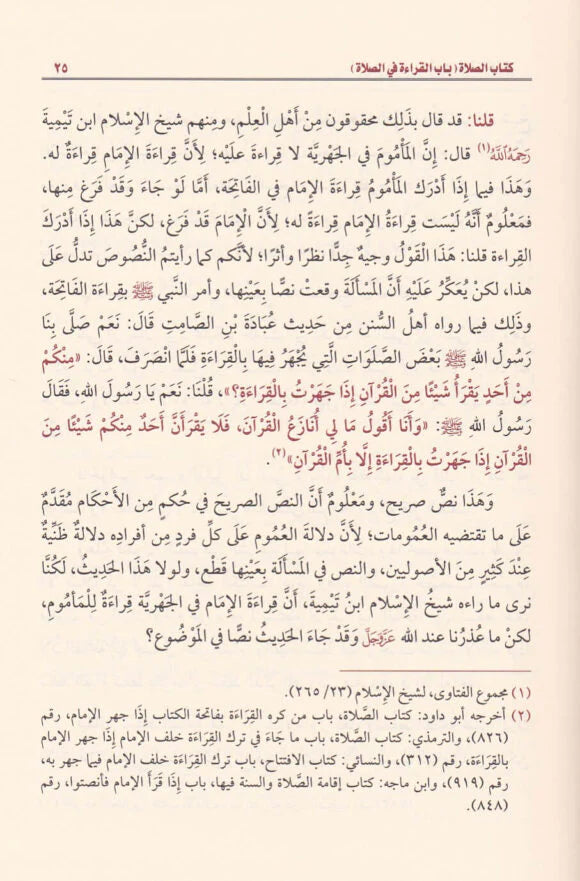 كتاب الصلاة (باب القراءة في الصلاة) ٢٥
قلنا: قد قال بذَلِك محقوقون مِنْ أَهْلِ العِلْمِ، ومنهم شيخ الإِسلام ابن تَيْمِيةَ
رَحِمَهُ اللَّهُ(١) قال: إِنَّ المَأْمُومَ في الجَهْرِيَّة لا قِراءةَ علَيْه؛ لِأَنَّ قِراءَةَ الإِمَامِ قِراءةٌ له.
وَهَذَا فيما إِذَا أَدْرَك المَأْمُومُ قِراءَةَ الإِمام في الفَاتِحَة، أَمَّا لَوْ جاءَ وَقَدْ فَرَغ منها،
فمَعْلُومٌ أَنَّه لَيْسَت قِراءَةُ الإِمام قِراءَةً له؛ لِأَنَّ الإِمَامَ قَدْ فَرَغ، لكنَّ هَذَا إِذَا أَدْرَكَ
القِراءة قلنا: هَذَا القَوْلُ وجيهٌ جِدًّا نظرًا وأثرًا؛ لأنَّكم كما رأيتمُ النُّصُوصَ تدلُّ عَلَى
هذا، لكنْ يُعَكِّرُ عَلَيْهِ أَنَّ المَسأَلَةَ وقعتْ نصًّا بِعَيْنِها، وأمر النَّبي ﷺ بِقِراءَةِ الفَاتِحَة،
وَذَلِك فيما رواه أهلُ السُّنن مِن حَدِيث عُبَادَةَ بْنِ الصَّامِتِ قَالَ: نَعَمْ صَلَّى بِنَا
رَسُولُ اللهِ ﷺ بَعْضَ الصَّلَوَاتِ الَّتِي يُجْهَرُ فِيهَا بِالْقِرَاءَةِ فَلَمَّا انْصَرَفَ، قَالَ: «مِنْكُمْ
مِنْ أَحَدٍ يَقْرَأُ شَيْئًا مِنَ الْقُرْآنِ إِذَا جَهَرْتُ بِالْقِرَاءَةِ؟»، قُلْنَا: نَعَمْ يَا رَسُولَ اللهِ، فَقَالَ
رَسُولُ اللهِ ﷺ: «وَأَنَا أَقُولُ مَا لِي أُنَازَعُ الْقُرْآنَ، فَلَا يَقْرَأَنَّ أَحَدٌ مِنْكُمْ شَيْئًا مِنَ
الْقُرْآنِ إِذَا جَهَرْتُ بِالْقِرَاءَةِ إِلَّا بِأُمِّ الْقُرْآنِ»(٢).
وَهَذَا نصٌّ صريح، ومَعْلُومٌ أَنَّ النص الصريحَ في حُكمٍ مِن الأَحْكام مُقَدَّمٌ
عَلَى ما تقتضيه العُمُومات؛ لِأَنَّ دلالةَ العُمُومِ عَلَى كلِّ فردٍ من أفرادِه دلالةٌ ظَنِّيةٌ
عِنْدَ كَثِيرٍ مِنَ الأصوليين، والنص في المَسأَلة بِعَيْنِها قَطْع، ولولا هَذَا الحَدِيثُ، لَكُنَّا
نرى ما راءه شيخُ الإِسْلام ابنُ تَيْمِيةَ، أَنَّ قِراءَةَ الإِمَام في الجَهْرِيَّة قِراءَةٌ لِلْمَأمُومِ،
لكنْ ما عُذرُنا عند الله عَزَّوَجَلَّ وَقَدْ جَاءَ الحَدِيثُ نصًّا في المَوْضُوع؟
(١) مجموع الفتاوى، لشيخ الإِسْلام (٢٣/ ٢٦٥).
(٢) أخرجه أبو داود: كتاب الصَّلاة، باب من كره القِرَاءَة بفاتحة الكتاب إِذَا جهر الإمام، رقم
(٨٢٦)، والترمذي: كتاب الصَّلاة، باب ما جَاءَ في ترك القِرَاءَة خلف الإمام إِذَا جهر الإمام
بالقِرَاءَة، رقم (٣١٢)، والنسائي: كتاب الافتتاح، باب ترك القِرَاءَة خلف الإمام فيما جهر به،
رقم (٩١٩)، وابن ماجه: كتاب إقامة الصَّلاة والسنة فيها، باب إِذَا قَرَأَ الإمام فأنصتوا، رقم
(٨٤٨).